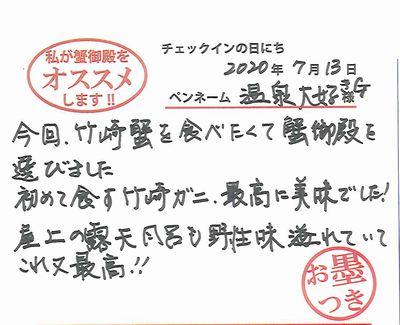 私が蟹御殿を
オススメ
します!!
チェックインの日にち
2020年7月13日
ペンネーム 温泉大好きG様
今回、竹崎蟹を食べたくて蟹御殿を
選びました
初めて食す竹崎ガニ、最高に美味でした!
屋上の露天風呂も野性味溢れていて
これ又最高!!
お墨
つき